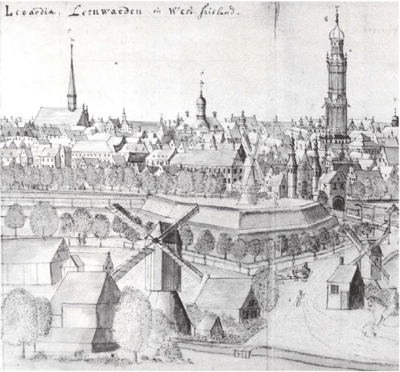 Leoardia. Leeuwaerden in West frieland.